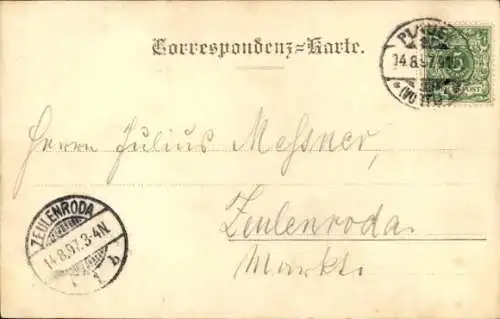 PLAUEN
14.8.97.
5
Correspondenz=Karte.
Herrn Julius Messner,
Zeulenroda
Markt.
ZEULENRODA
14.8.97.3-4N.
b